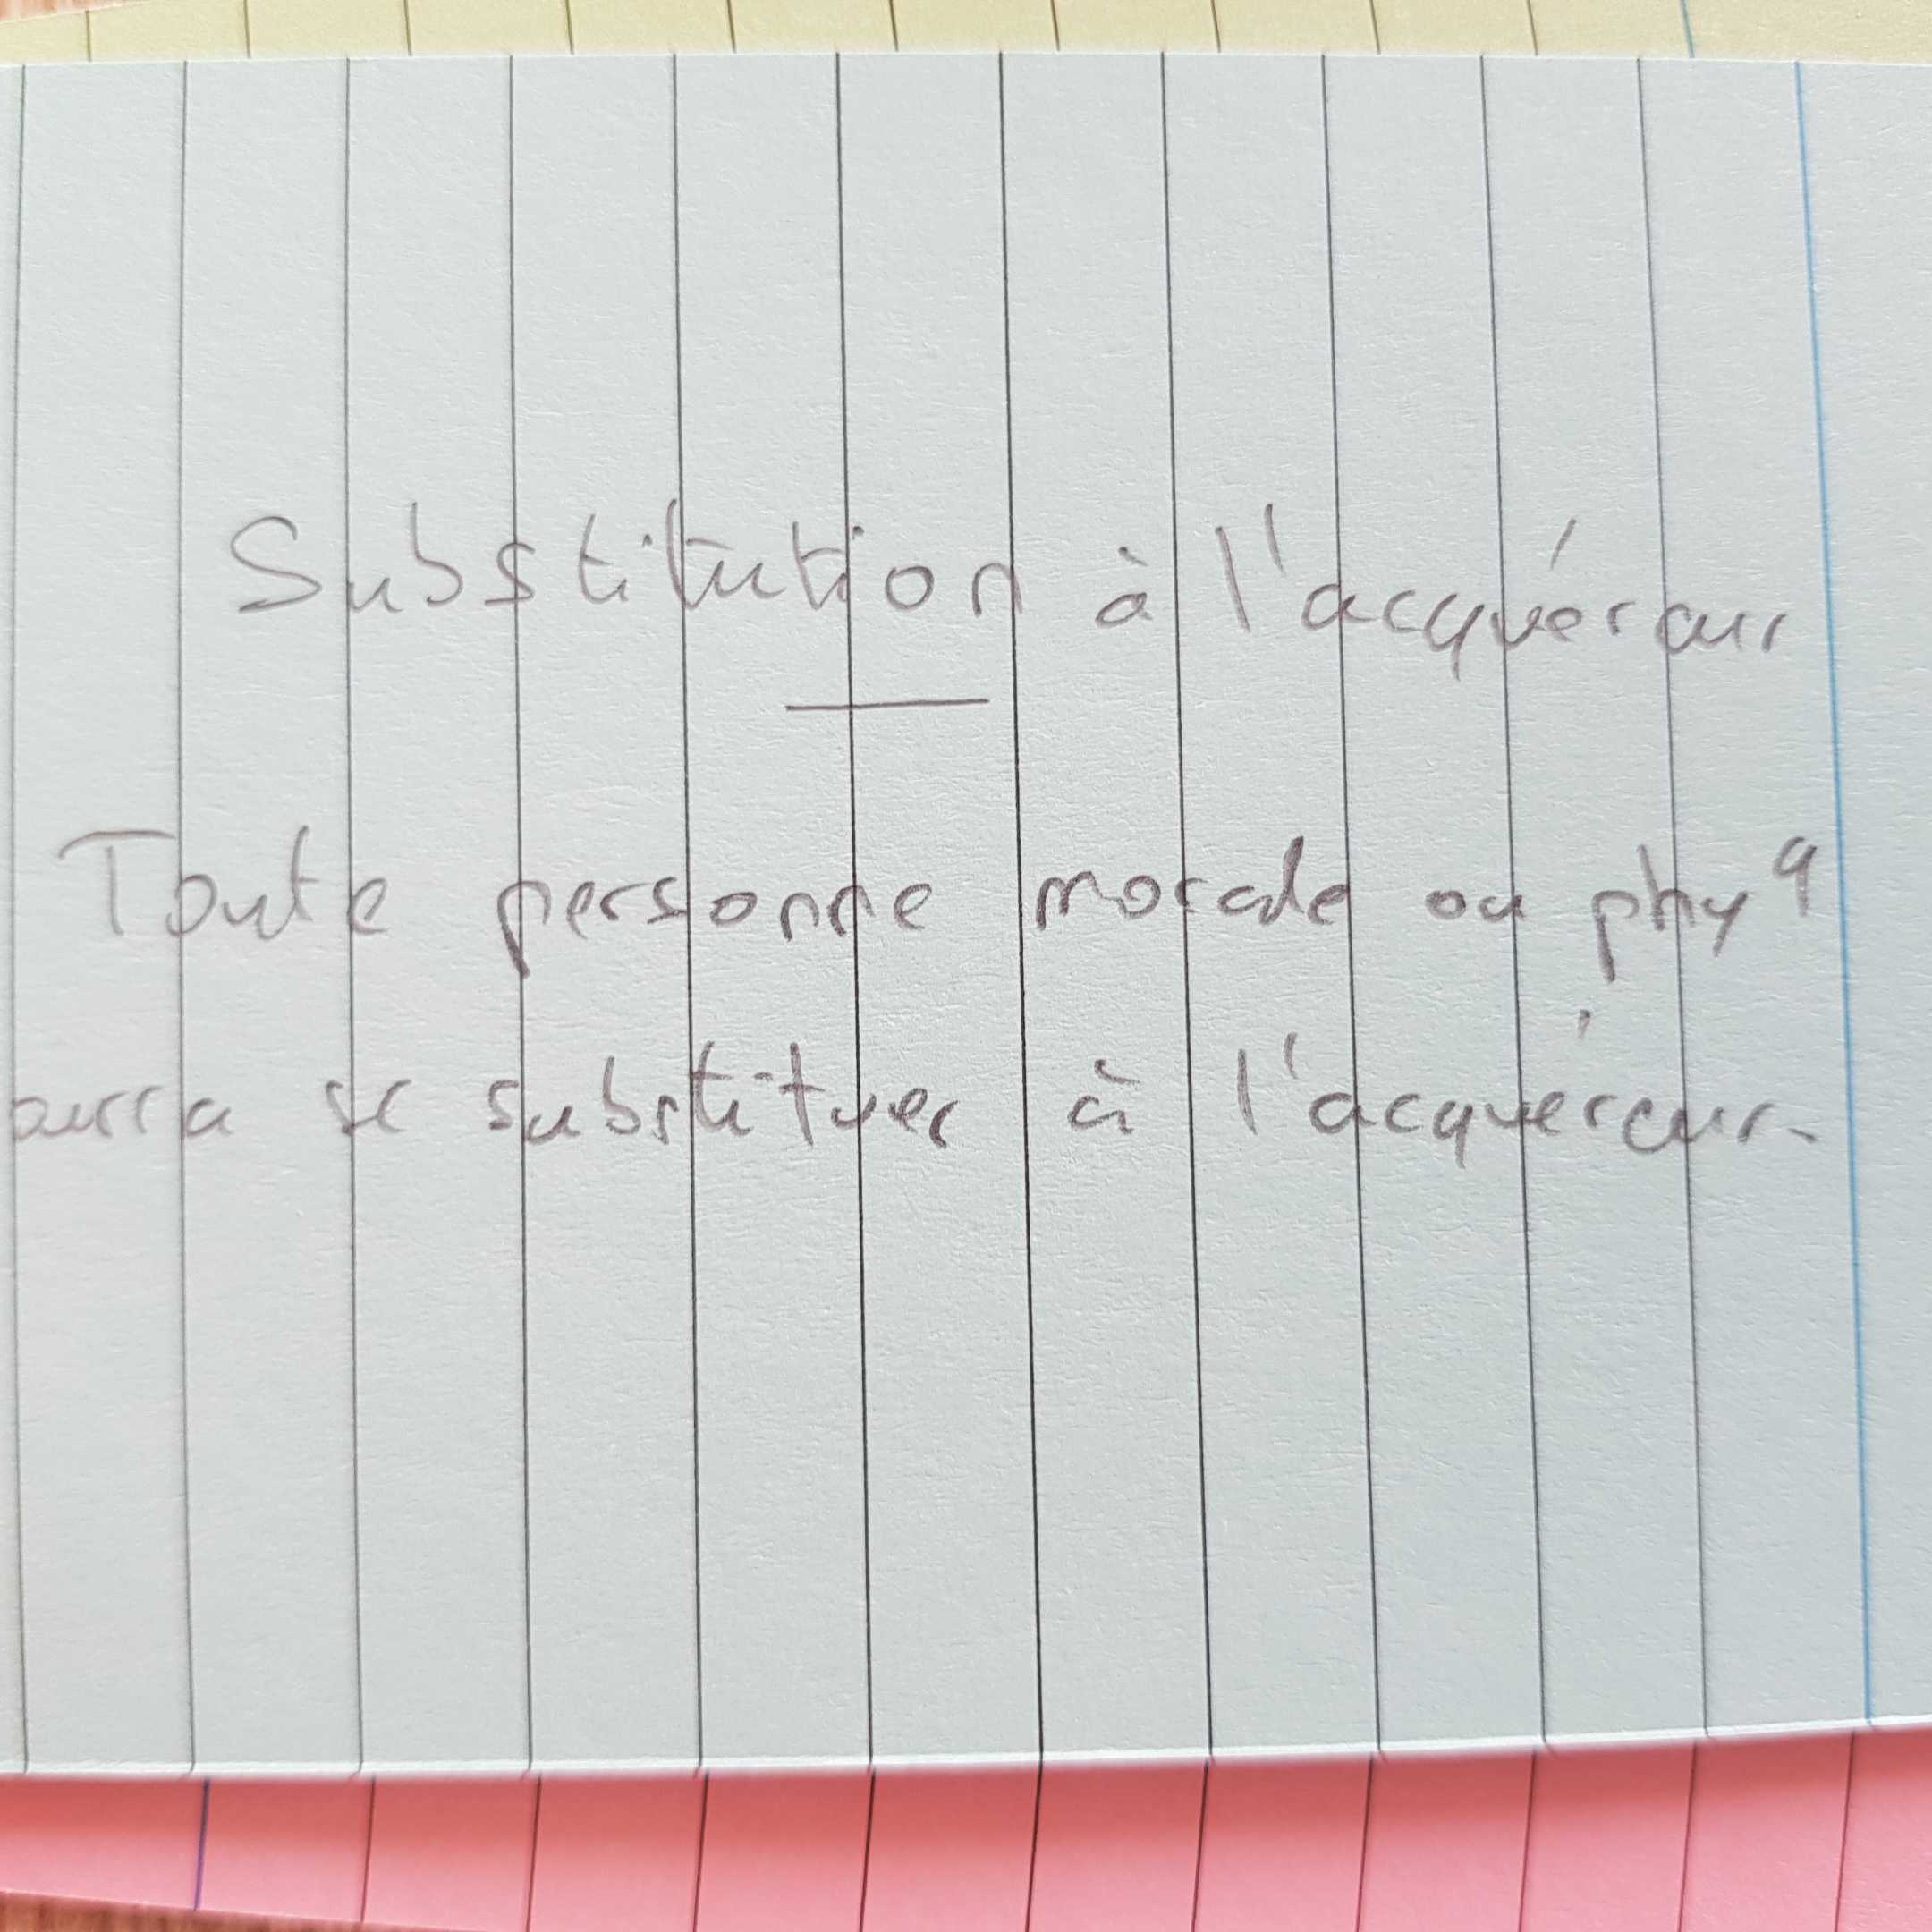 Substitution à l'acquéreur
Toute personne morale ou phyq
ourra se substituer à l'acquéreur.